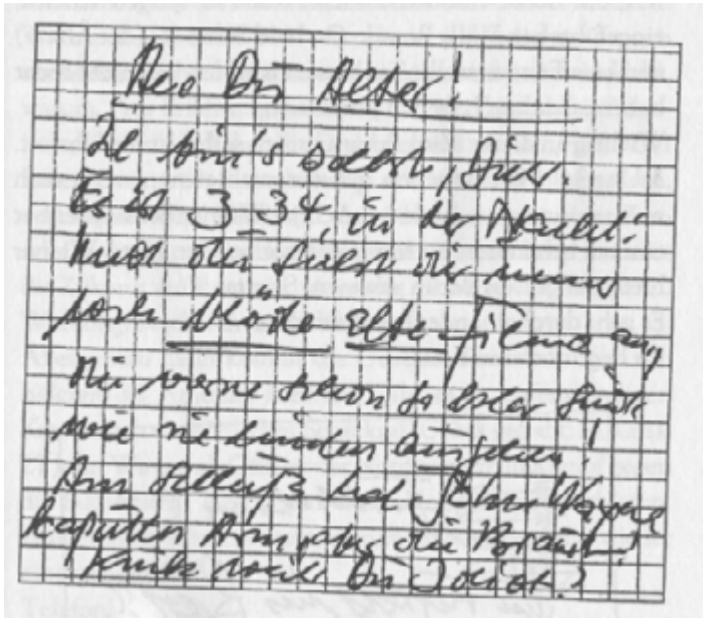 Heo Du Alter!
Ich bin's selbst, Dein
Es ist 3 34, in der Nacht!
Und du siehst dir immer
noch blöde alte Filme an,
die vorne schon so
wie sie hinten ausgehen!
Am Schluß hat John Wayne
kaputten Arm, aber die Braut!
Du Idiot?